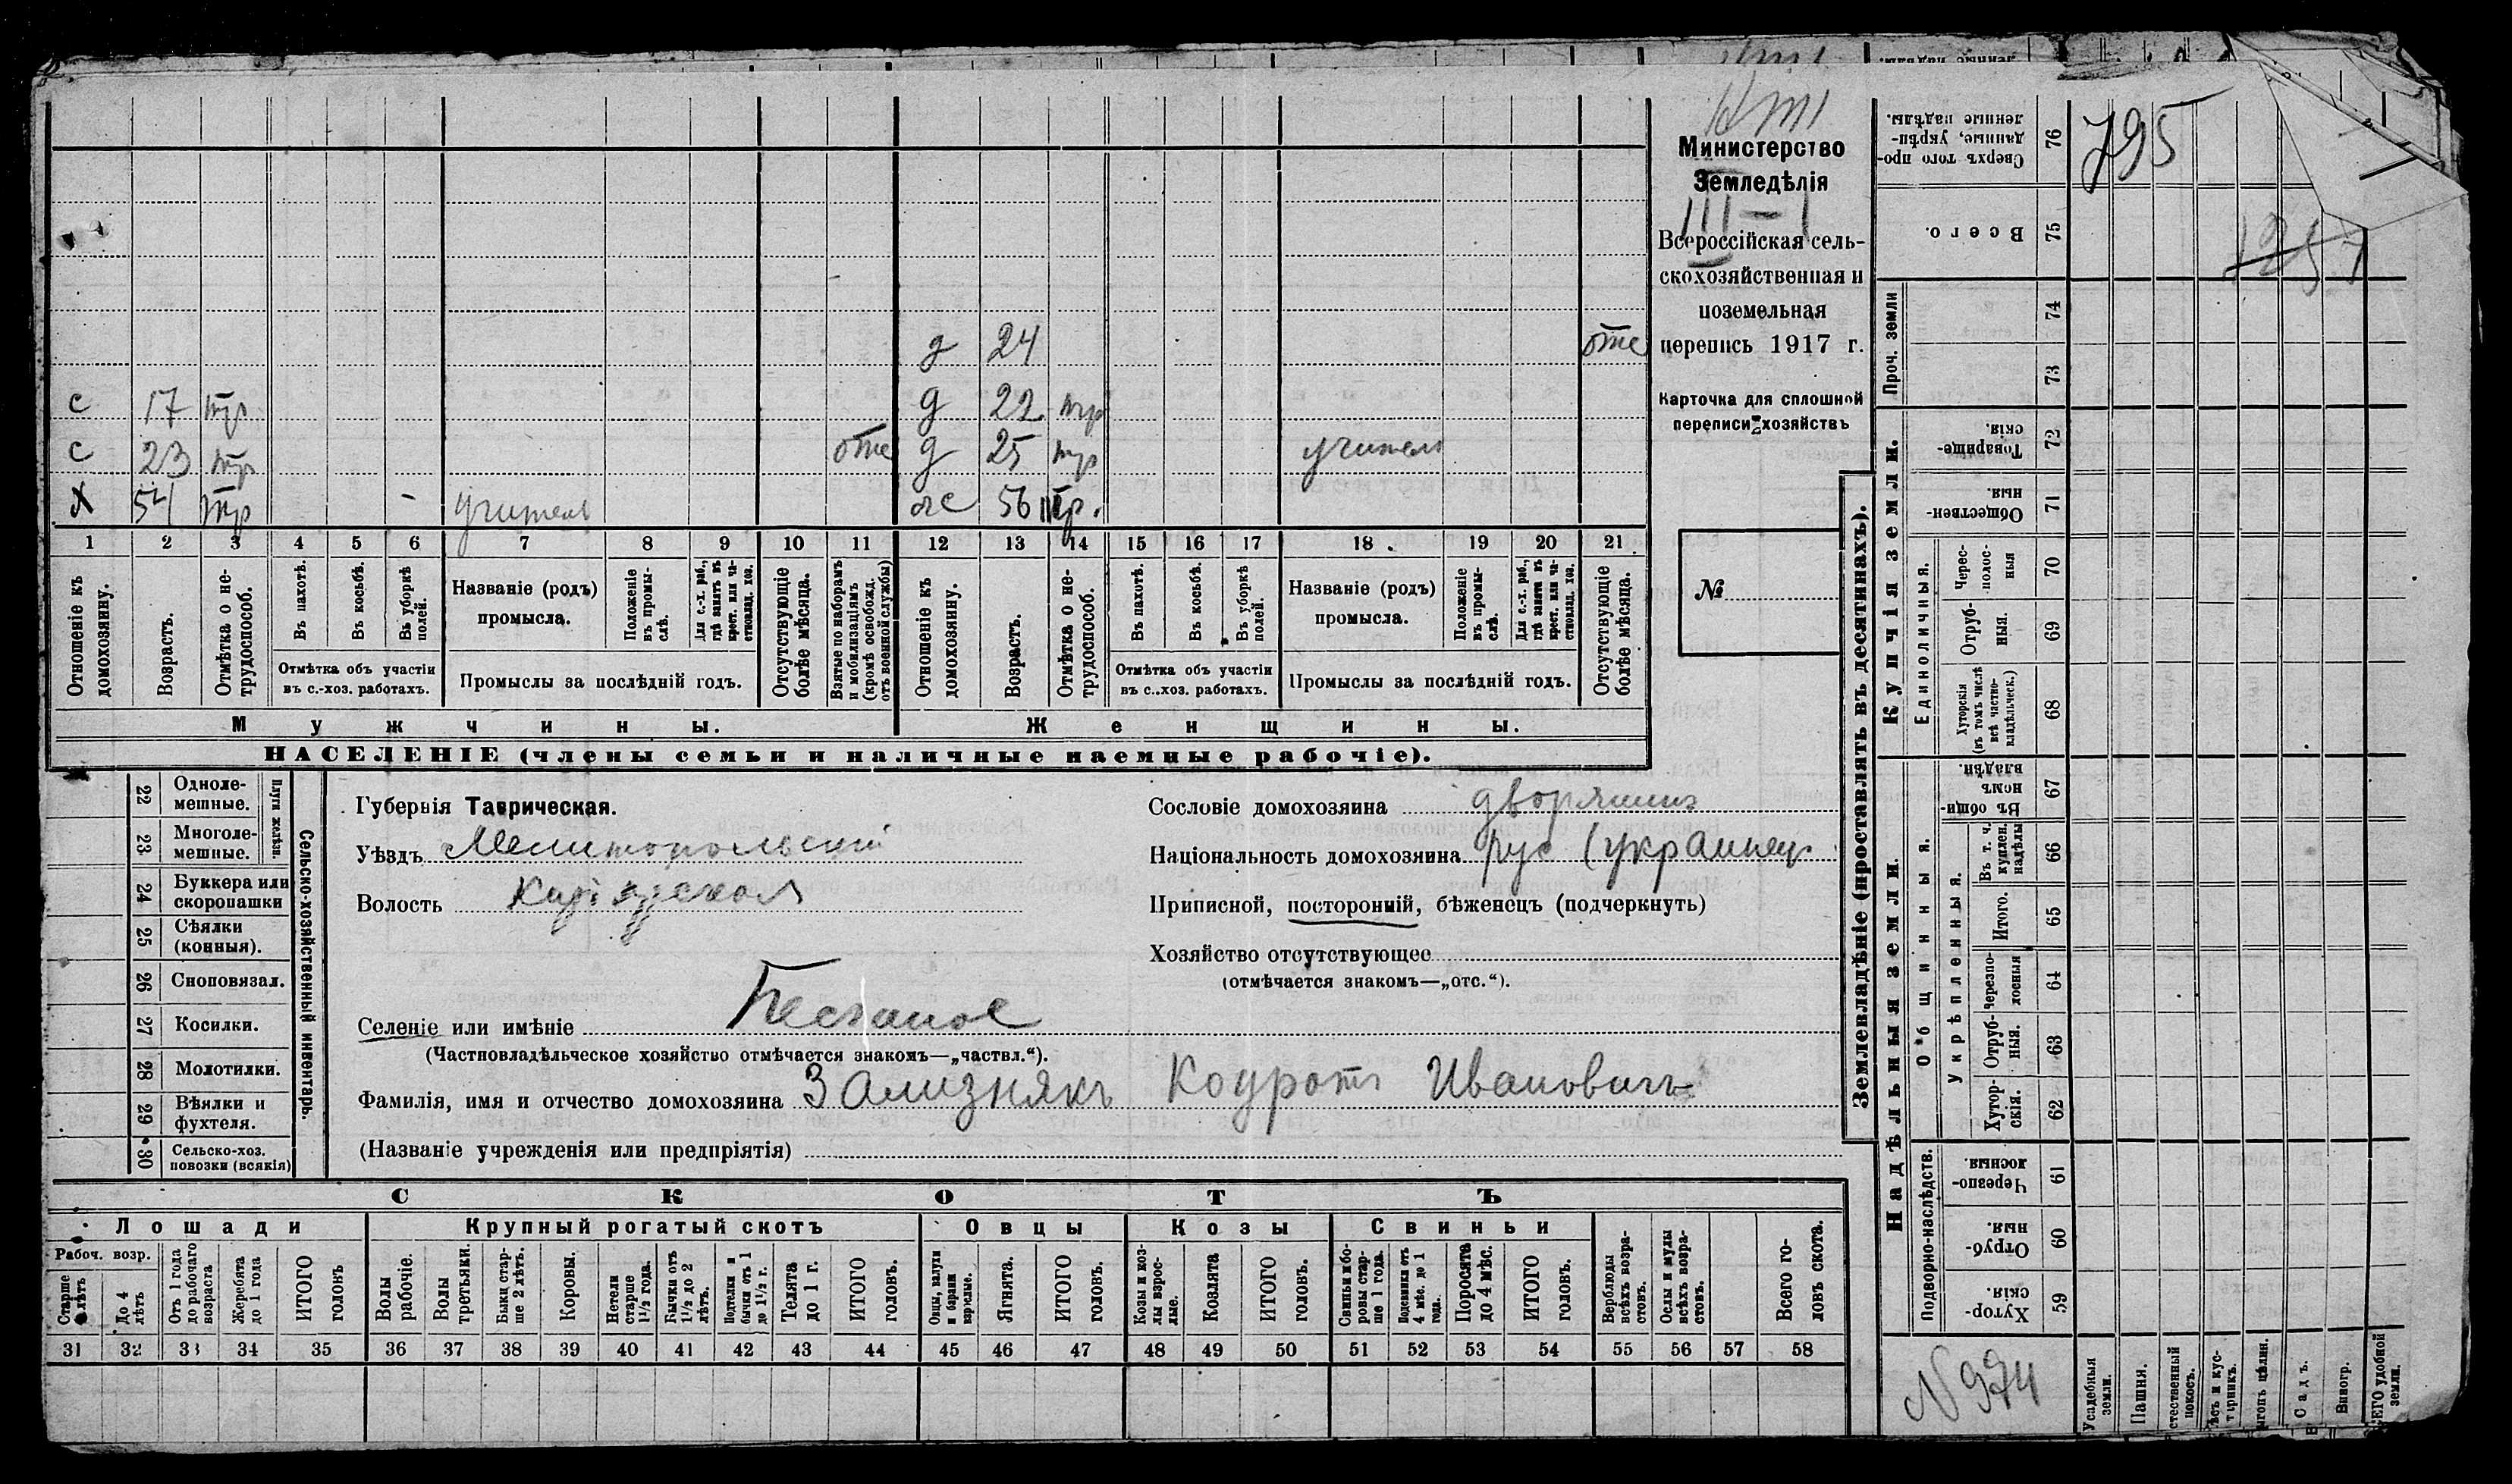 Министерство
Земледѣлія
III — I
Всероссійская сель-
скохозяйственная и
поземельная
перепись 1917 г.
Карточка для сплошной
переписи хозяйствъ
№
д 24 отс
с 17 тр д 22 тр
с 23 тр отс д 25 тр учител
х 54 тр - учитель ж 56 тр.
1 2 3 4 5 6 7 8 9 10 11 12 13 14 15 16 17 18 19 20 21
Отношеніе къ домохозяину.
Возрастъ.
Отмѣтка о не-трудоспособ.
Въ пахотѣ.
Въ косьбѣ.
Въ уборкѣ полей.
Отмѣтка объ участіи въ с.-хоз. работахъ.
Названіе (родъ) промысла.
Положеніе въ промы-слѣ.
Для с.-х. раб., гдѣ занятъ въ крест. или ча-стновлад. хоз.
Промыслы за послѣдній годъ.
Отсутствующіе болѣе мѣсяца.
Взятые по наборамъ и мобилизаціямъ (кромѣ освобожд. отъ военной службы)
Отношеніе къ домохозяину.
Возрастъ.
Отмѣтка о не-трудоспособ.
Въ пахотѣ.
Въ косьбѣ.
Въ уборкѣ полей.
Отмѣтка объ участіи въ с..хоз. работахъ.
Названіе (родъ) промысла.
Положеніе въ промы-слѣ.
Для с.-х. раб., гдѣ занятъ въ крест. или ча-стновлад. хоз.
Промыслы за послѣдній годъ.
Отсутствующіе болѣе мѣсяца.
Мужчины. Женщины.
НАСЕЛЕНІЕ (члены семьи и наличные наемные рабочіе).
Сельско-хозяйственный инвентарь.
Плуги желѣзн.
22 Одноле-мешные.
23 Многоле-мешные.
24 Буккера или скоропашки
25 Сѣялки (конныя).
26 Сноповязал.
27 Косилки.
28 Молотилки.
29 Вѣялки и фухтеля.
30 Сельско-хоз. повозки (всякія)
Губернія Таврическая.
Уѣздъ Мелитопольскій
Волость
Селеніе или имѣніе
(Частновладѣльческое хозяйство отмѣчается знакомъ—„частвл.“).
Фамилія, имя и отчество домохозяина Зализнякъ Кодратъ Ивановичъ
(Названіе учрежденія или предпріятія)
Сословіе домохозяина дворянинъ
Національность домохозяина рус (украинец
Приписной, посторонній, бѣженецъ (подчеркнуть)
Хозяйство отсутствующее
(отмѣчается знакомъ—„отс.“).
СКОТЪ
Лошади Крупный рогатый скотъ Овцы Козы Свиньи
Рабоч. возр.
Старше 4 лѣтъ
До 4 лѣтъ
Отъ 1 года до рабочаго возраста
Жеребята до 1 года
ИТОГО головъ
Волы рабочіе.
Волы третьяки.
Быки стар-ше 2 лѣтъ.
Коровы.
Нетели старше 1½ года.
Бычки отъ 1½ до 2 лѣтъ.
Подтелки и бычки отъ 1 до 1½ г.
Телята до 1 г.
ИТОГО головъ.
Овцы, валухи и бараны взрослые.
Ягнята.
ИТОГО головъ.
Козы и коз-лы взрос-лые.
Козлята
ИТОГО головъ.
Свиньи и бо-ровы стар-ше 1 года.
Подсвинки отъ 4 мѣс. до 1 года.
Поросята до 4 мѣс.
ИТОГО головъ.
Верблюды всѣхъ возра-стовъ.
Ослы и мулы всѣхъ возра-стовъ.
Всего го-ловъ скота.
31 32 33 34 35 36 37 38 39 40 41 42 43 44 45 46 47 48 49 50 51 52 53 54 55 56 57 58
Землевладѣніе (проставлять въ десятинахъ).
795
Сверхъ того про-данные, укрѣп-ленные надѣлы. 76
Всего. 75
Проч. земли
74
73
Купчія земли.
Товарище-скія. 72
Обществен-ныя. 71
Единоличныя.
Черес-полос-ныя 70
Отруб-ныя. 69
Хуторскія (въ томъ числѣ всѣ частно-владѣльческ.) 68
Надѣльныя земли.
Общинныя.
Въ общи-номъ владѣн. 67
Въ т. ч. куплен. надѣлы 66
Укрѣпленныя.
Итого. 65
Черезпо-лосныя 64
Отруб-ныя. 63
Хутор-скія. 62
Подворно-наслѣдств.
Черезпо-лосныя. 61
Отруб-ныя. 60
Хутор-скія. 59
N 974
Усадебныя земли.
Пашня.
Садъ.
Виногр.